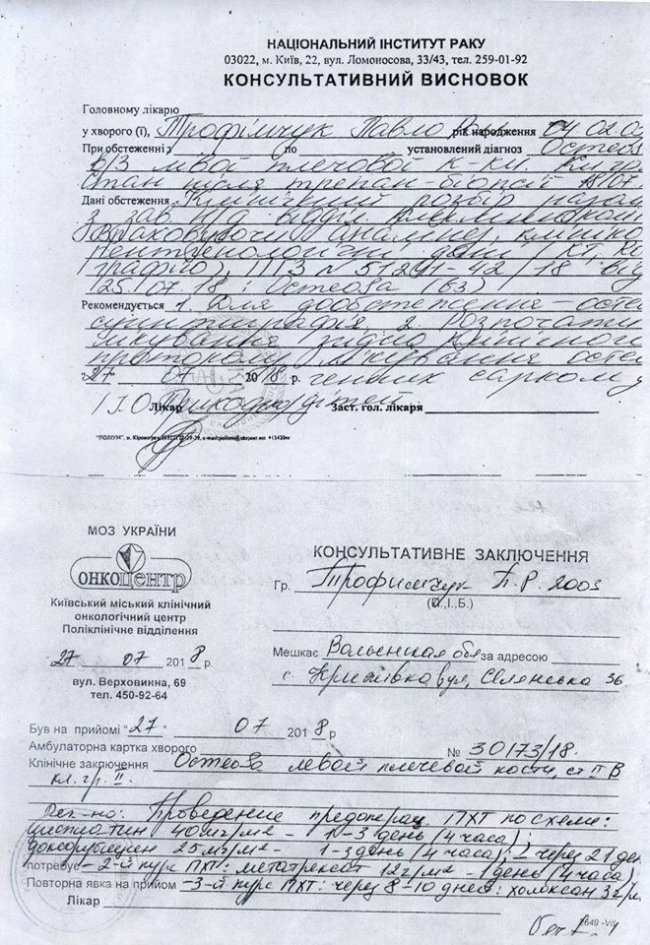 НАЦІОНАЛЬНИЙ ІНСТИТУТ РАКУ
03022, м. Київ, 22, вул. Ломоносова, 33/43, тел. 259-01-92
КОНСУЛЬТАТИВНИЙ ВИСНОВОК
Головному лікарю
у хворого (ї), Трофімчук Павло рік народження 04 02 03
При обстеженні з по установлений діагноз Остеоса
в/3 лівої плечової к-ки.
Стан після трепан-біопсії 18.07.
Дані обстеження Клінічний розбір
з зав.
Враховуючи анамнез, клініко
рентгенологічні дані (КТ,
графію), ПГЗ N 51291-42/18 від
25.07.18: Остеоsа (G3)
Рекомендується 1. Для дообстеження – остео
сцинтиграфія. 2. Розпочати
лікування згідно клінічного
протоколу лікування остео
"27" 07 2018 р. генних сарком у
Лікар дітей Заст. гол. лікаря
МОЗ УКРАЇНИ
ОНКОЦЕНТР
Київський міський клінічний
онкологічний центр
Поліклінічне відділення
27 07 2018 р.
вул. Верховинна, 69
тел. 450-92-64
КОНСУЛЬТАТИВНЕ ЗАКЛЮЧЕННЯ
Гр. Трофимчук П.Р. 2003
(П.,І.,Б.)
Мешкає Волынская обл за адресою
с. вул, Селянська 36.
Був на прийомі "27. 07 2018 р
Амбулаторна картка хворого № 30173/18.
Клінічне заключення Остеоsа левой плечевой кости, ст II В
кл. гр. II.
Рек-но: Проведение предоперац ПХТ по схеме:
цисплатин 40мг/м² – 1-3 день (4 часа);
доксорубицин 25мг/м² – 1-3 день (4 часа); через 21 день
потребує – 2-й курс ПХТ: метатрексат 12г/м² – 1 день (4 часа);
Повторна явка на прийом – 3-й курс ПХТ: через 8-10 дней: холоксан 3г/м
Лікар